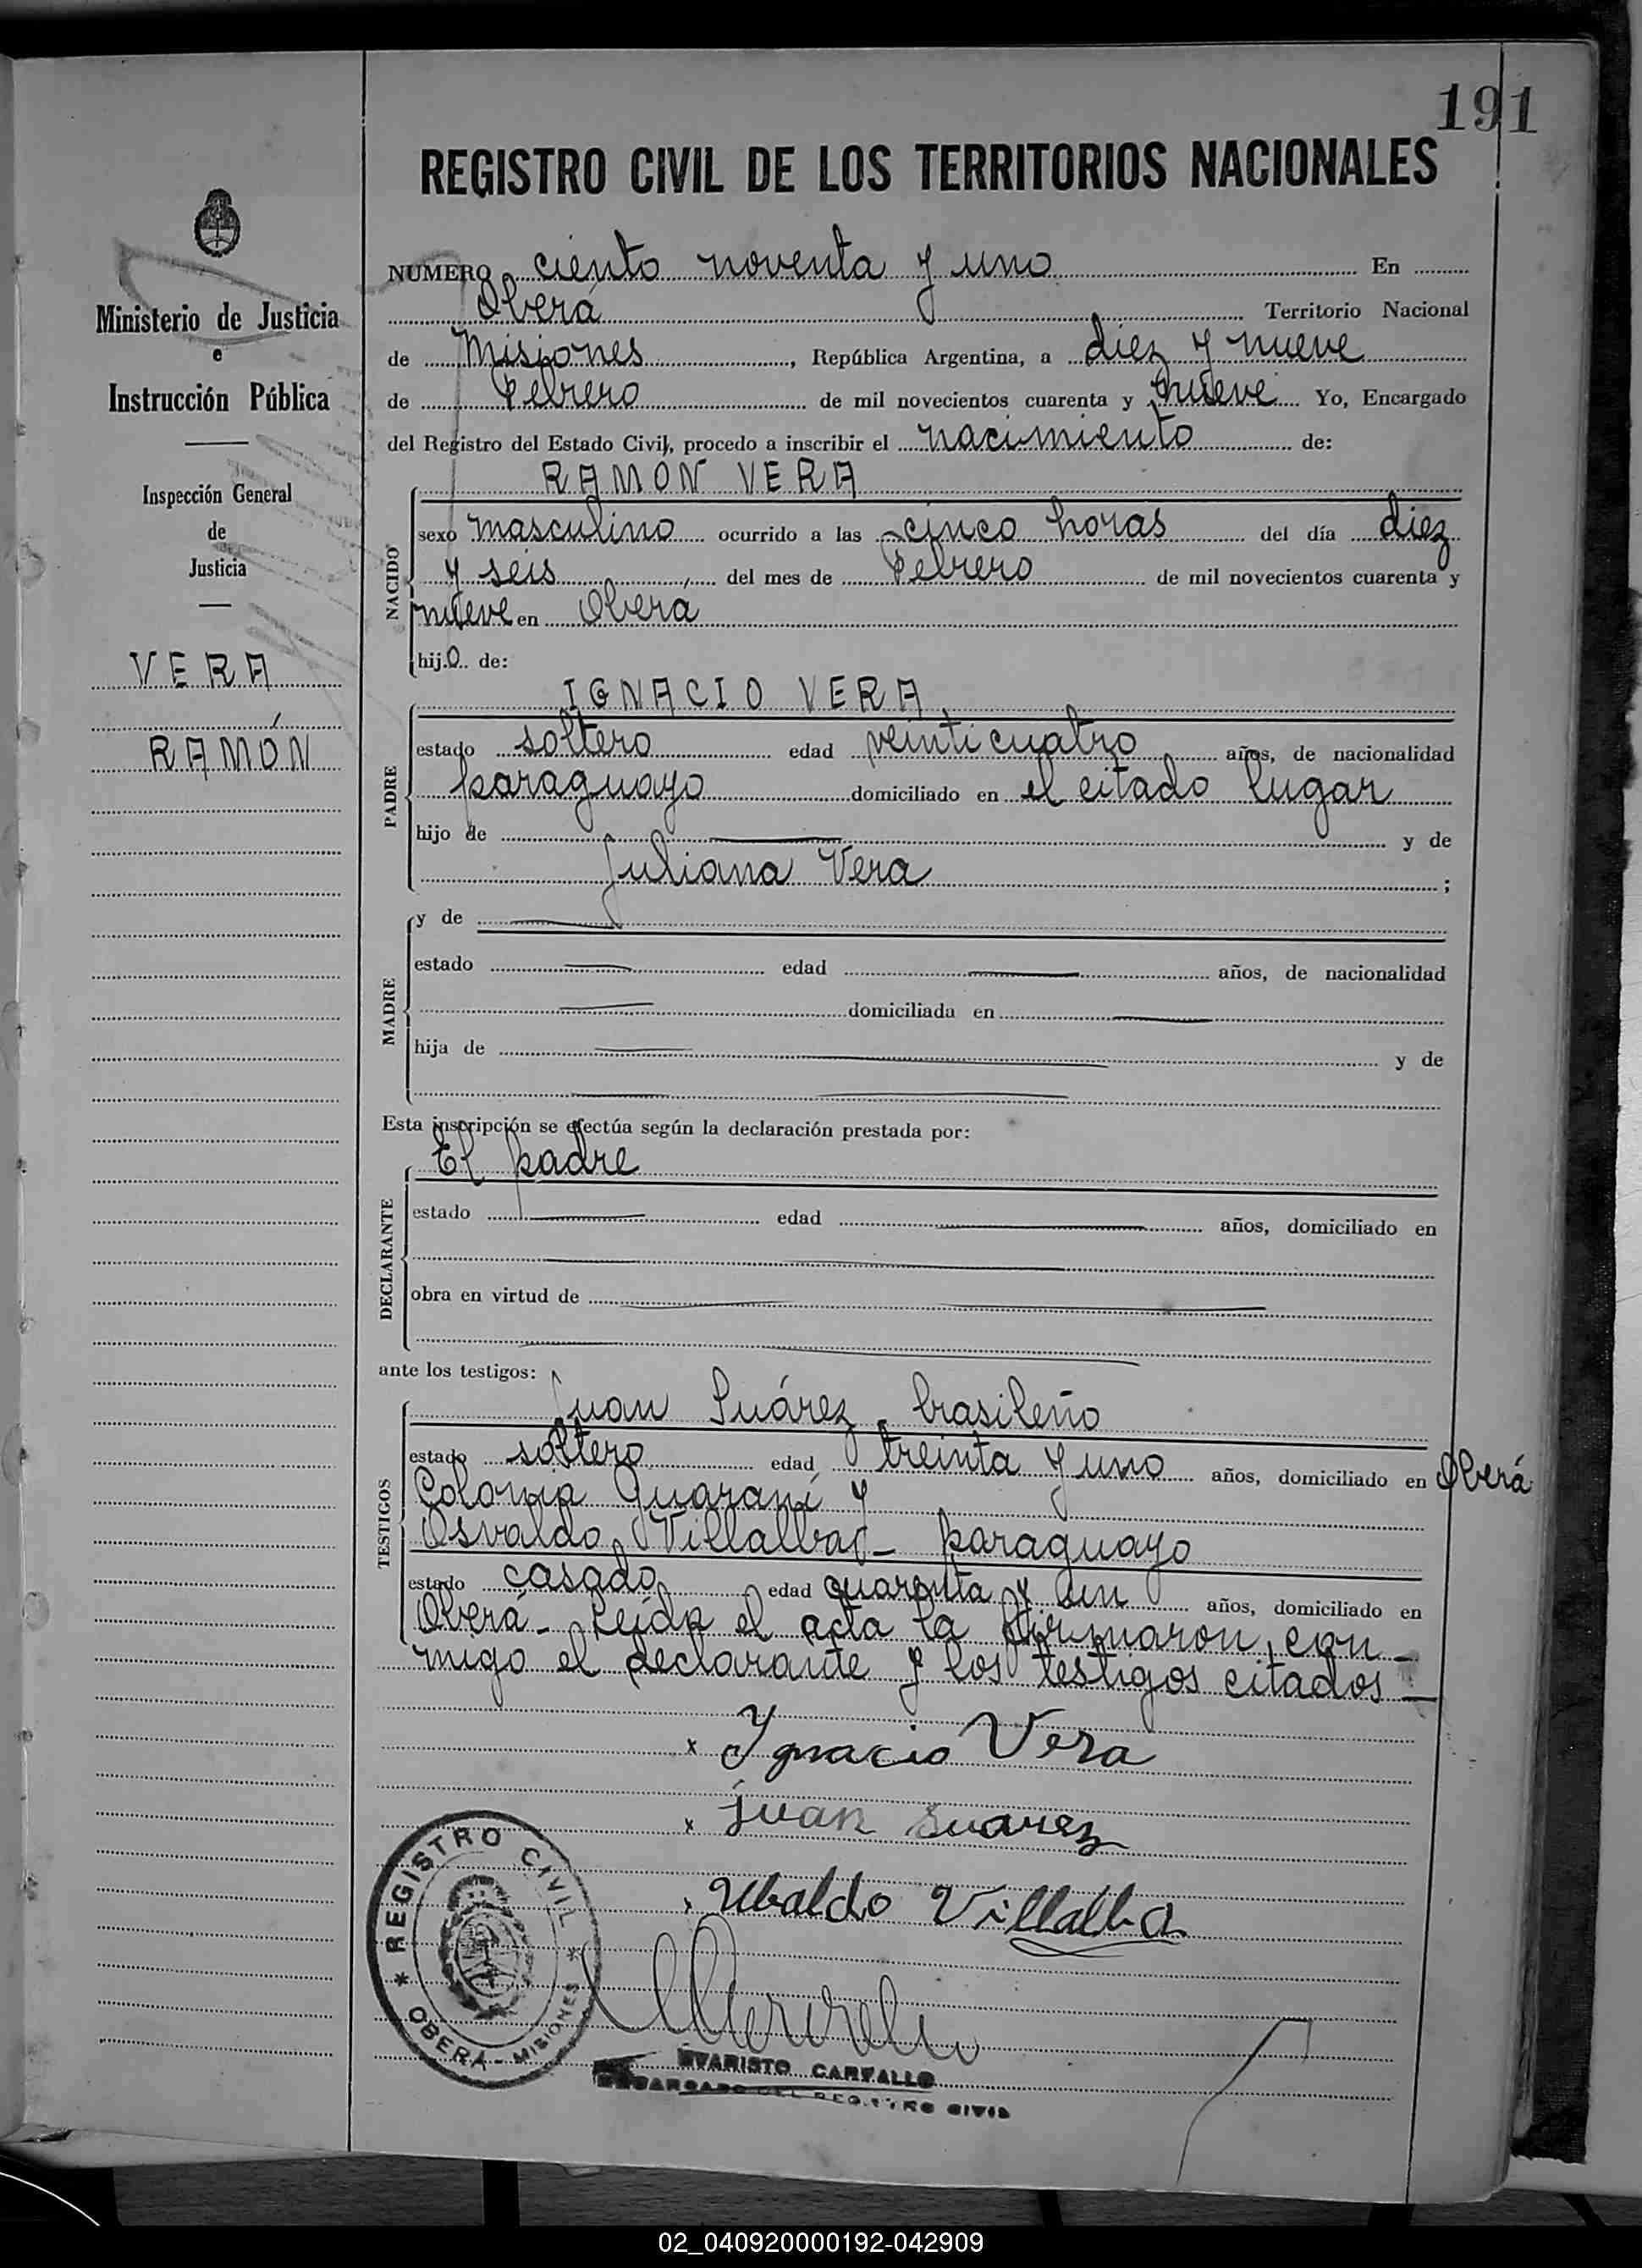 191
REGISTRO CIVIL DE LOS TERRITORIOS NACIONALES
Ministerio de Justicia
e
Instrucción Pública
Inspección General
de
Justicia
VERA
RAMÓN
NUMERO ciento noventa y uno En
Oberá Territorio Nacional
de Misiones, República Argentina, a diez y nueve
de Febrero de mil novecientos cuarenta y nueve Yo, Encargado
del Registro del Estado Civil, procedo a inscribir el nacimiento de:
RAMÓN VERA
NACIDO
sexo masculino ocurrido a las cinco horas del día diez
y seis del mes de Febrero de mil novecientos cuarenta y
nueve en Oberá
hijo de:
IGNACIO VERA
PADRE
estado soltero edad veinticuatro años, de nacionalidad
paraguayo domiciliado en el citado lugar
hijo de y de
Juliana Vera ;
MADRE
y de
estado edad años, de nacionalidad
domiciliada en
hija de y de
Esta inscripción se efectúa según la declaración prestada por:
El padre
DECLARANTE
estado edad años, domiciliado en
obra en virtud de
ante los testigos:
Juan Suárez, brasileño
TESTIGOS
estado soltero edad treinta y uno años, domiciliado en Oberá
Colonia Guaraní y
Osvaldo Villalba - paraguayo
estado casado edad cuarenta y un años, domiciliado en
Oberá - Leída el acta la firmaron con
migo el declarante y los testigos citados -
x Ignacio Vera
x juan Suarez
Ubaldo Villalba
REGISTRO CIVIL
OBERÁ - MISIONES
EVARISTO CARVALLO
ENCARGADO DEL REGISTRO CIVIL
02_040920000192-042909